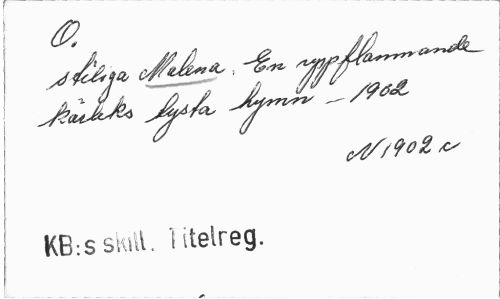 O.
stiliga Malena. En uppflammande
kärleks lysta hymn – 1902
N 1902 c
KB:s skill. Titelreg.